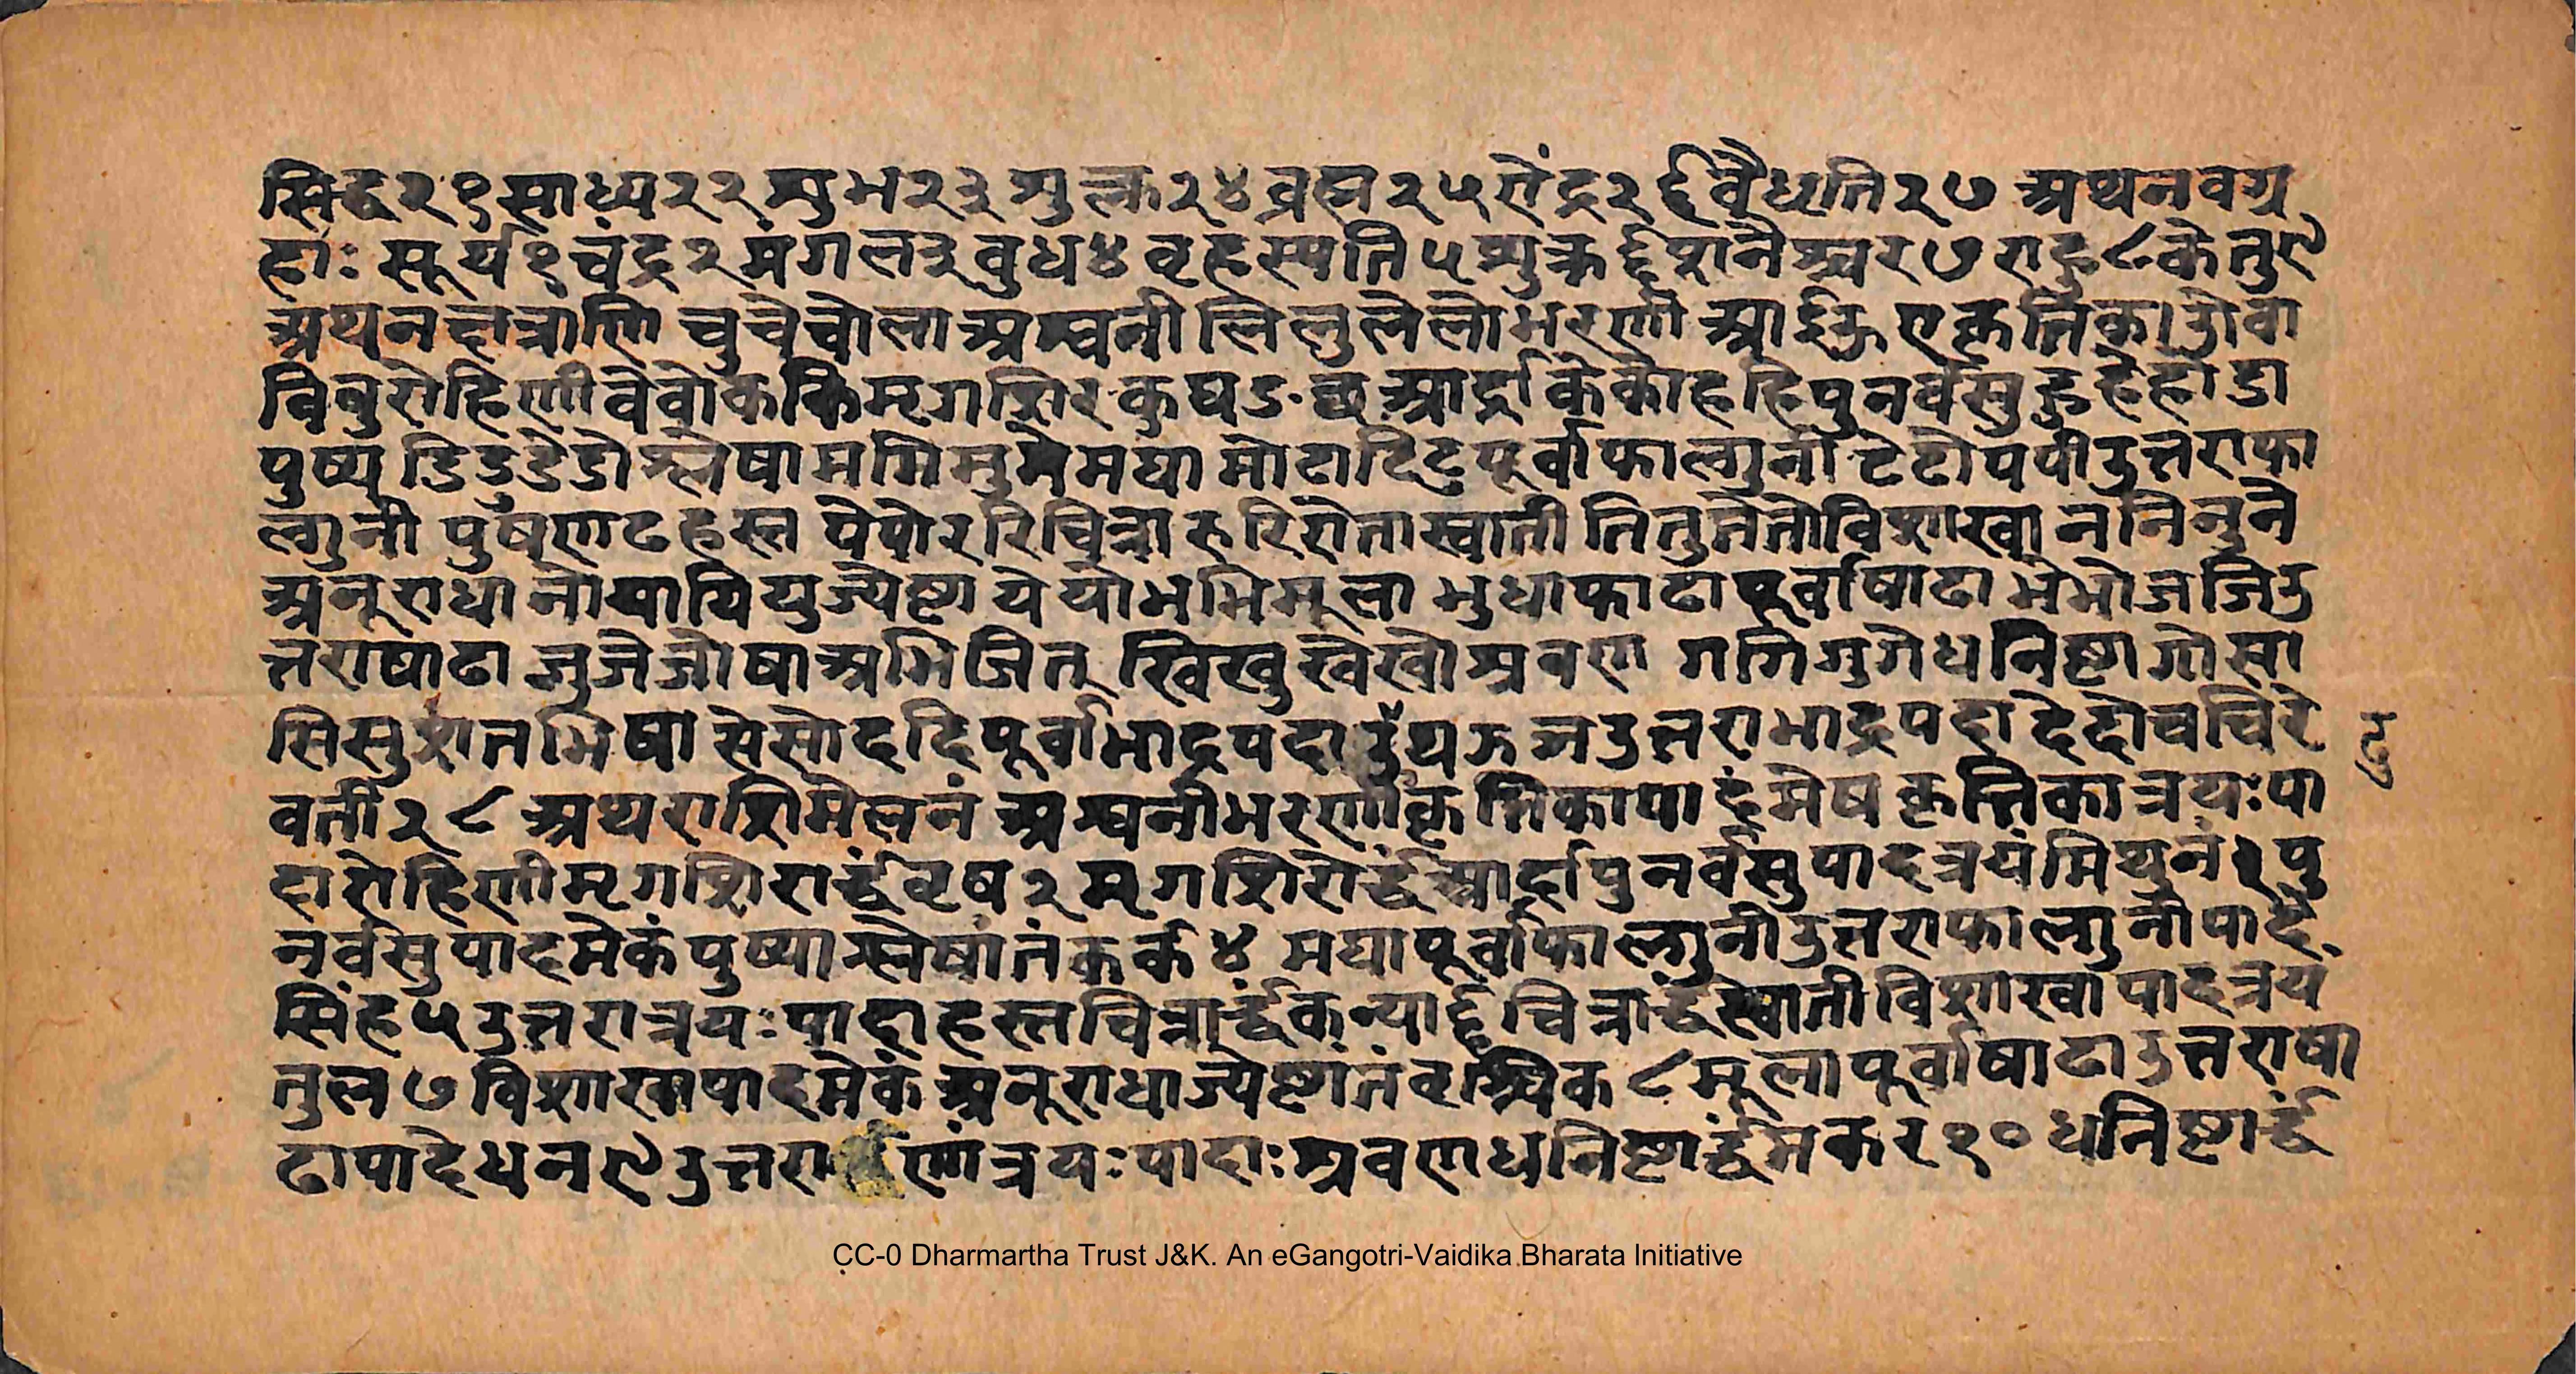 सिद्ध२१साध्य२२शुभ२३शुल्क२४व्रह्म२५ऐंद्र२६वैधृति२७ अथनवग्र
हाः सूर्य१चंद्र२मंगल३वुध४वृहस्पति५शुक्र६शनैश्चर७राहु८केतु९
अथनक्षत्राणि चुचेचोला अश्वनी लिलुलेलोभरणी आईऊएकृत्तिका ओवा
विवुरोहिणीवेवोककिमृगशिर कुघङ.छआर्द्राकेकोहहिपुनर्वसुहुहेहोडा
पुष्य डिडुडेडोश्लेषाममिमुमेमघा मोटाटिटुपूर्वाफाल्गुनी टेटोपपीउत्तराफा
ल्गुनी पुषणढहस्त पेपोररिचित्रा रुरिरोतास्वाती तितुतेतोविशाखा ननिनुने
अनुराधा नोयायियुज्येष्टा येयोभभिमूला भुधाफाढापूर्वाषाढा भेभोजजिउ
त्तराषाढा जुजेजोषाअभिजित् खिखुखेखोश्रवण गगिगुगेधनिष्टागोसा
सिसुशतभिषा सेसोददिपूर्वाभाद्रपदादुथझञउत्तराभाद्रपदादेदोचचिरे
दु
वती२८ अथराशिमेलनं अश्वनीभरणीकृत्तिकापादंमेषकृत्तिकात्रयःपा
दारोहिणीमृगशिरार्द्धंवृष२मृगशिरोर्द्धंआर्द्रापुनर्वसुपादत्रयंमिथुनं३पु
नर्वसुपादमेकंपुष्याश्लेषांतंकर्क४ मघापूर्वाफाल्गुनीउत्तराफाल्गुनीपादे
सिंह५उत्तरात्रयःपादाहस्तचित्रार्द्धंकन्या६चित्रार्द्धंस्वातीविशाखापादत्रयं
तुल७विशाखापादमेकंअनुराधाज्येष्टांतंवृश्चिक८मूलापूर्वाषाढाउत्तराषा
ढापादेधन९उत्तरा णांत्रयःपादाःश्रवणधनिष्टार्द्धंमकर१०धनिष्टार्द्धं
CC-0 Dharmartha Trust J&K. An eGangotri-Vaidika Bharata Initiative